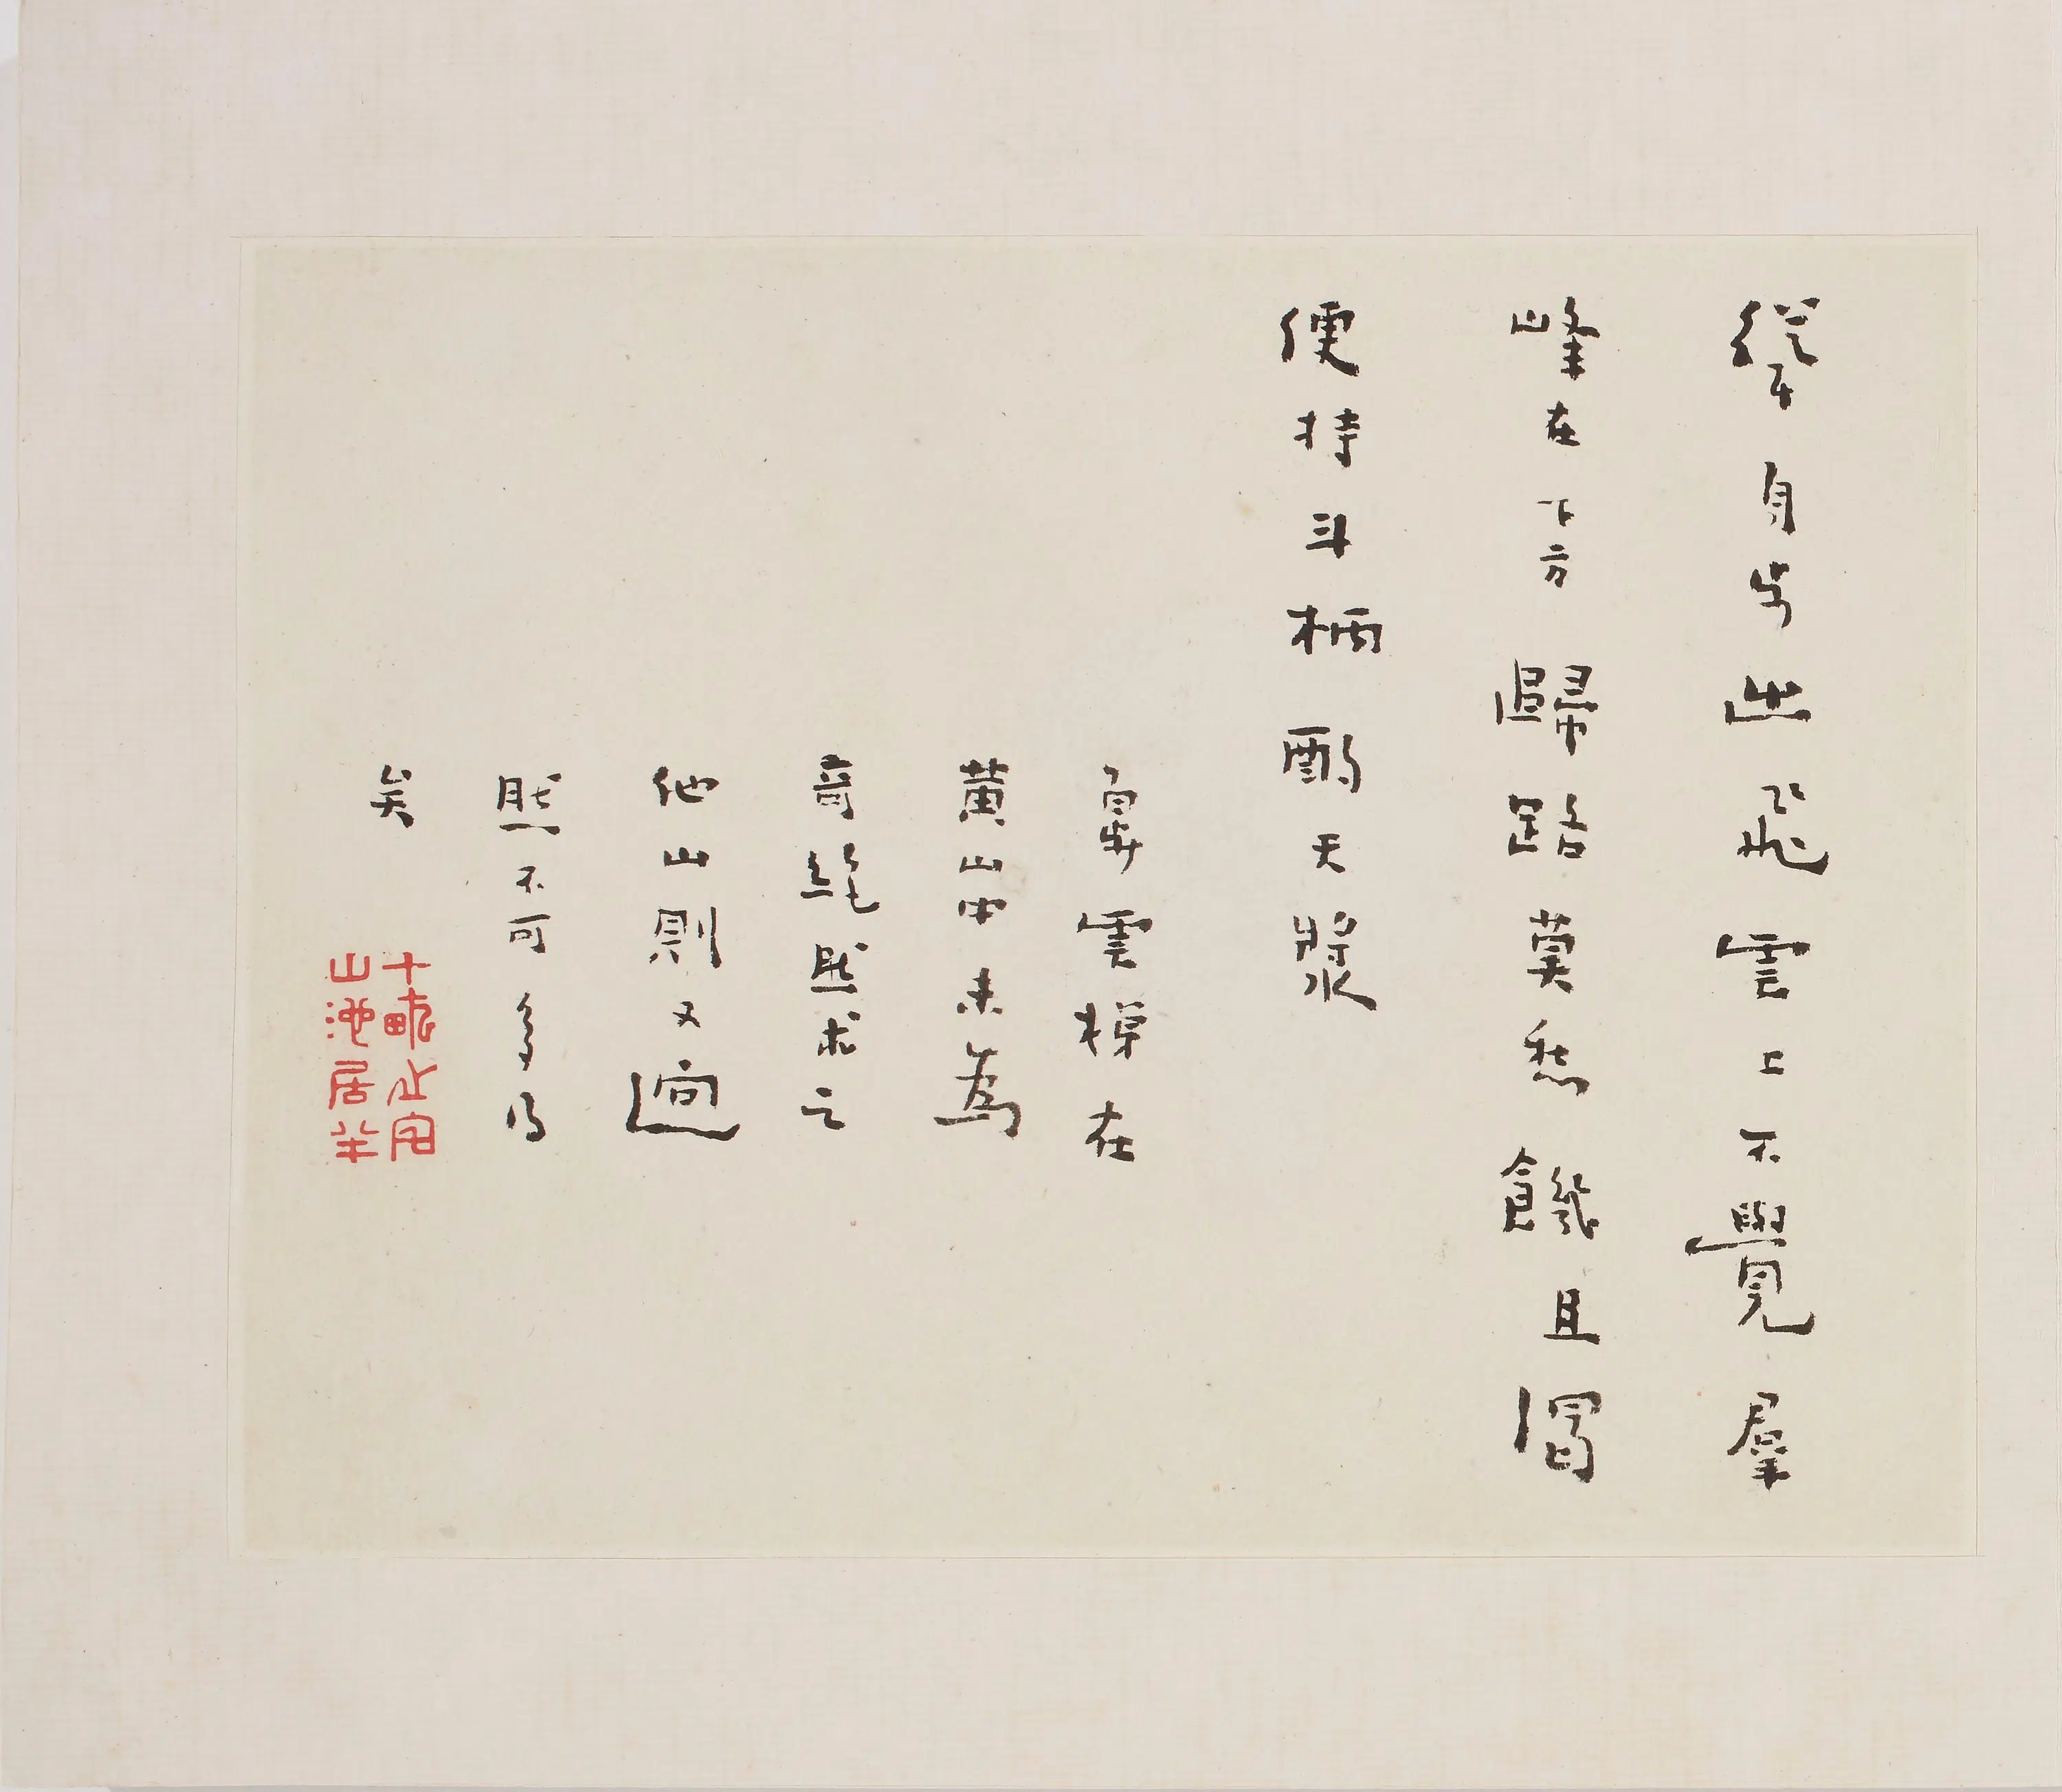 聳身步出飛雲上不覺羣
峰在下方歸路莫愁饑且渴
便持斗柄酌天漿
雲在
黃山中未為
奇絕然求之
他山則又迥
然不可多得
矣
十畝之宅
山池居半